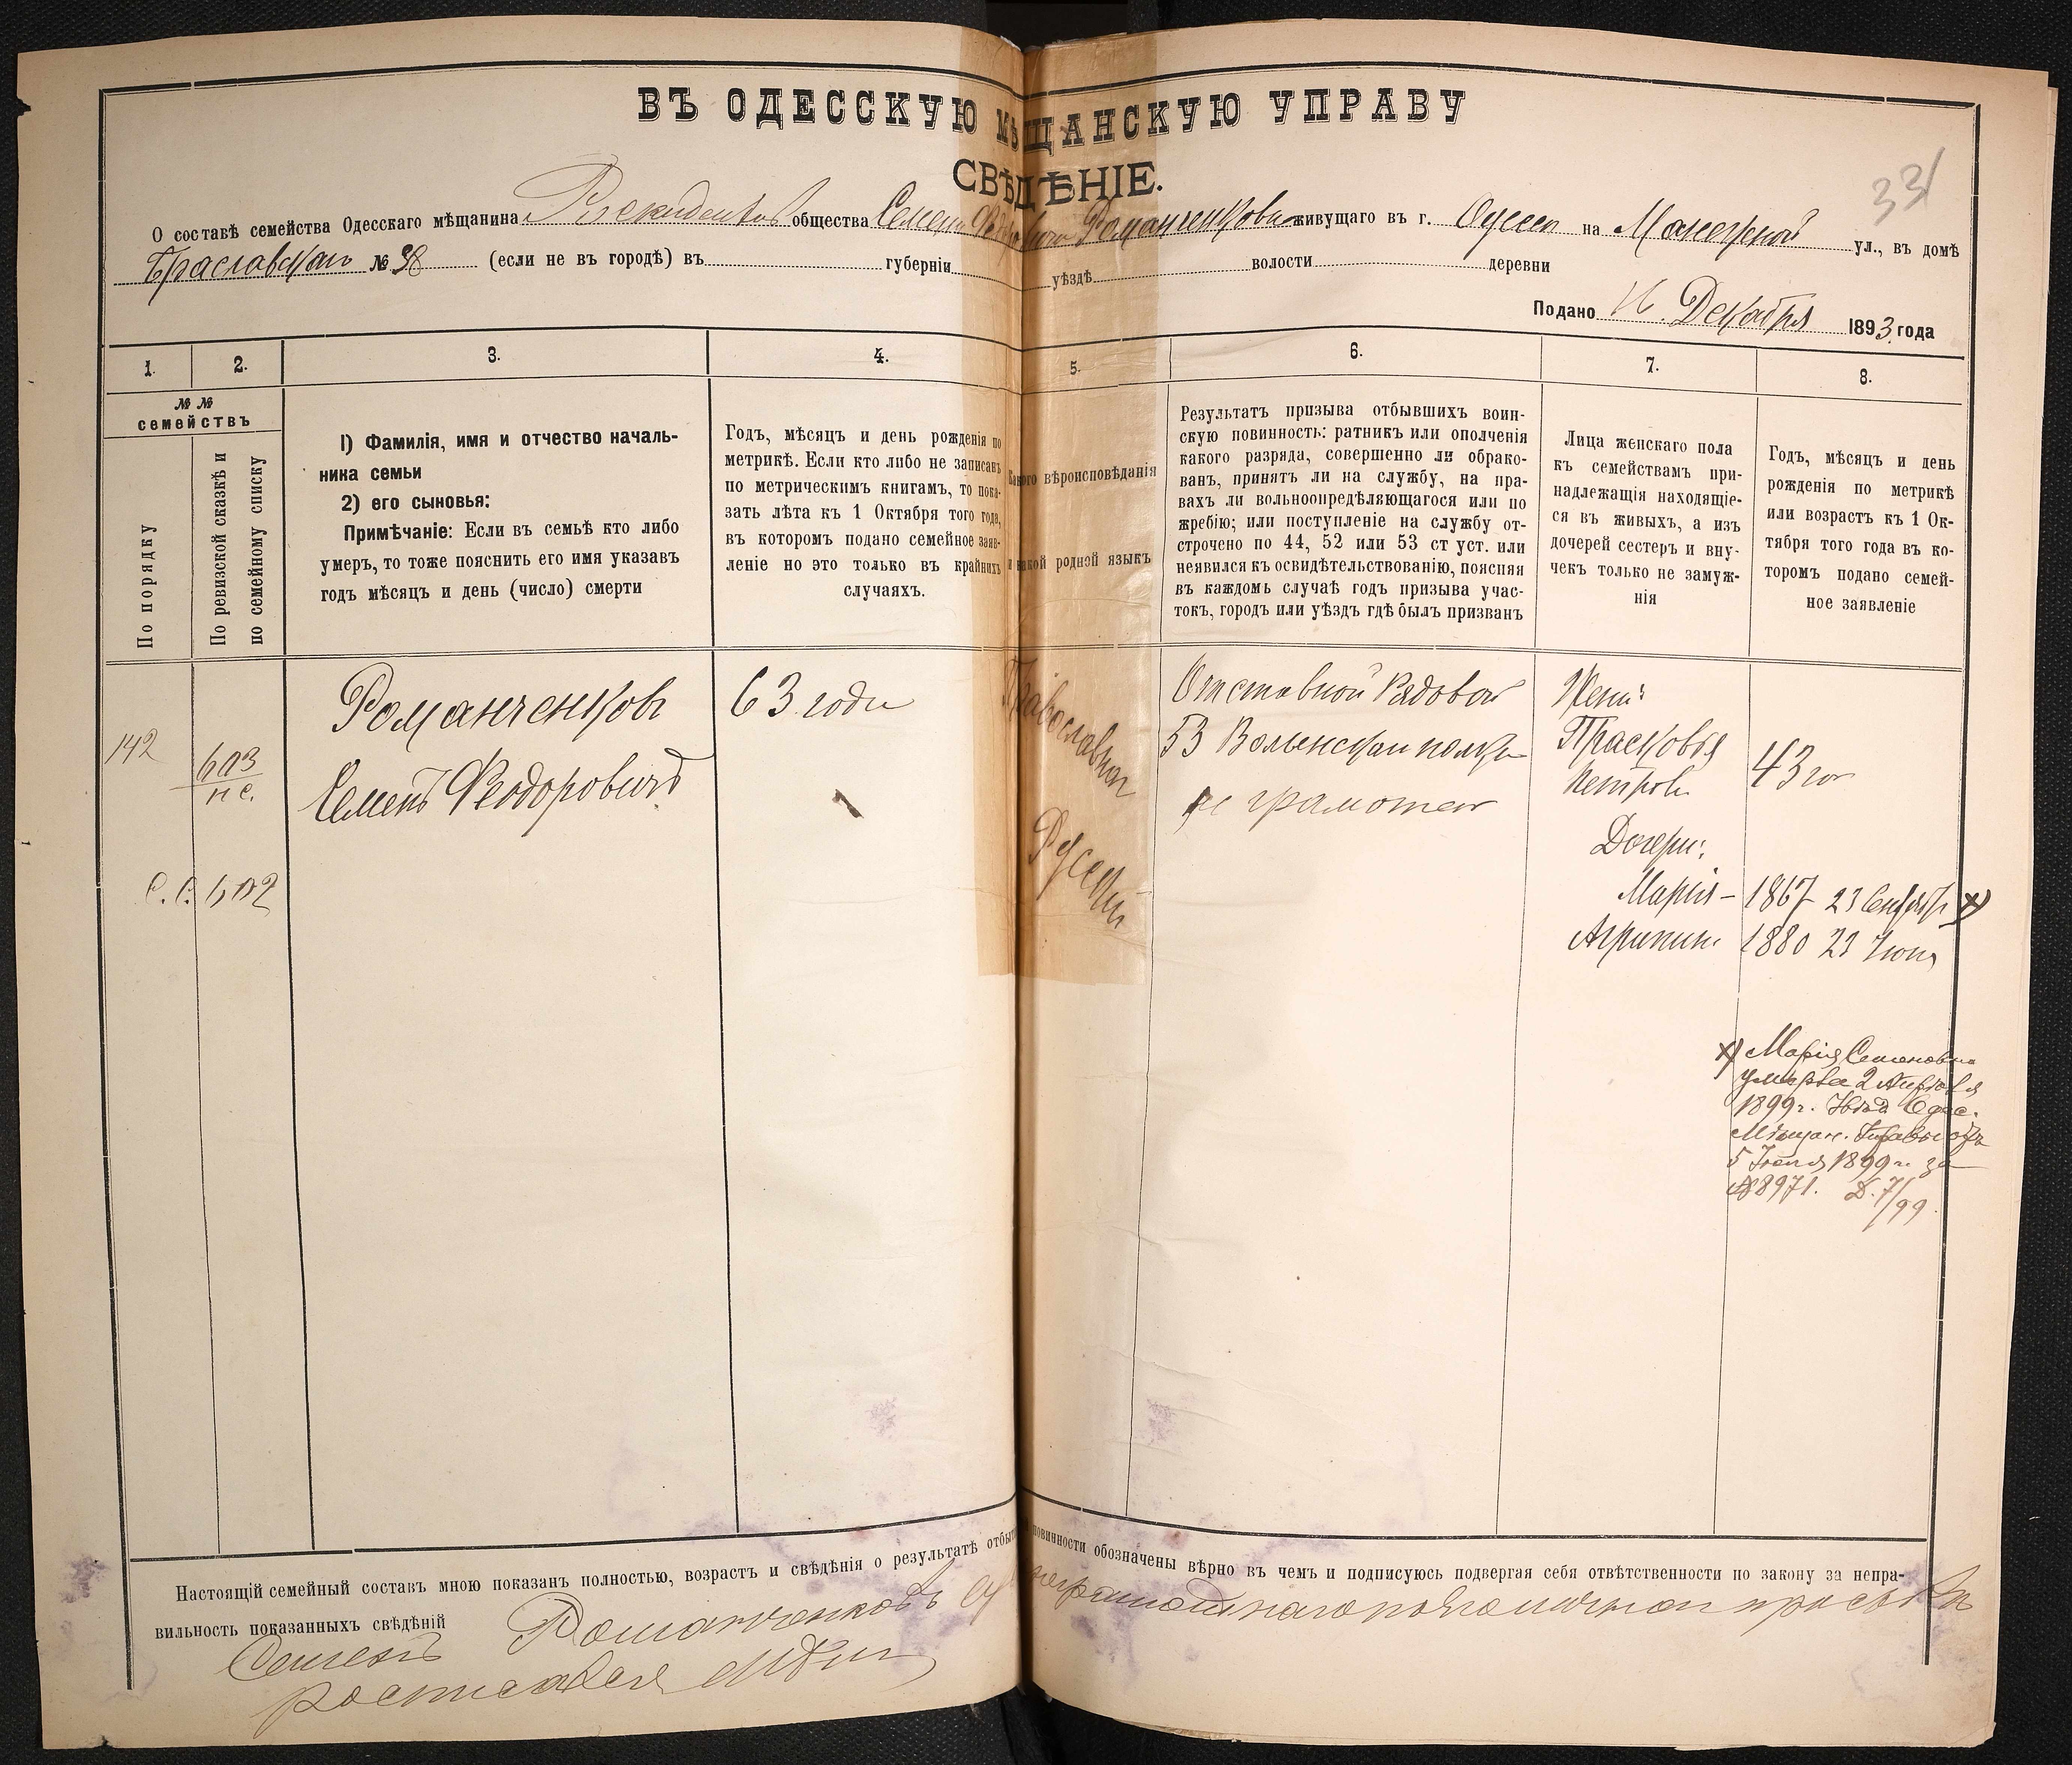 ВЪ ОДЕССКУЮ МѢЩАНСКУЮ УПРАВУ
СВѢДѢНІЕ.
331
О составѣ семейства Одесскаго мѣщанина общества Семена Романченкова живущаго въ г. Одессѣ на Манежной ул., въ домѣ
Браславскаго № 38 (если не въ городѣ) въ губерніи уѣздѣ волости деревни
Подано 16. Декабря 1893 года
1. 2. 3. 4. 5. 6. 7. 8.
№ №
семействъ
По порядку
По ревизской сказкѣ и
по семейному списку
1) Фамилія, имя и отчество началь-
ника семьи
2) его сыновья:
Примѣчаніе: Если въ семьѣ кто либо
умеръ, то тоже пояснить его имя указавъ
годъ мѣсяцъ и день (число) смерти
Годъ, мѣсяцъ и день рожденія по
метрикѣ. Если кто либо не записанъ
по метрическимъ книгамъ, то пока-
зать лѣта къ 1 Октября того года,
въ которомъ подано семейное заяв-
леніе но это только въ крайнихъ
случаяхъ.
Какого вѣроисповѣданія
и какой родной языкъ
Результатъ призыва отбывшихъ воин-
скую повинность: ратникъ или ополченія
какого разряда, совершенно ли обрако-
ванъ, принятъ ли на службу, на пра-
вахъ ли вольноопредѣляющагося или по
жребію; или поступленіе на службу от-
строчено по 44, 52 или 53 ст уст. или
неявился къ освидѣтельствованію, поясняя
въ каждомъ случаѣ годъ призыва учас-
токъ, городъ или уѣздъ гдѣ былъ призванъ
Лица женскаго пола
къ семействамъ при-
надлежащія находящіе-
ся въ живыхъ, а изъ
дочерей сестеръ и вну-
чекъ только не замуж-
нія
Годъ, мѣсяцъ и день
рожденія по метрикѣ
или возрастъ къ 1 Ок-
тября того года въ ко-
торомъ подано семей-
ное заявленіе
142
603
пс.
С. С. 602
Романченковъ
Семенъ Феодоровичъ
63 года
Православнаго
Русскій
Отставной Рядовой
53 Волынскаго полка
не грамотен
Жена:
Прасковья
Петровна
43 год
Дочери:
Марія – 1867 23 Сентября х)
Агрипина 1880 23 Іюня
х) Марія Семеновна
умерла 2 Апрѣля
1899 г. Увѣд. Одес.
Мѣщан. Управы отъ
5 Іюля 1899 г. за
№ 8971. Д. 7/99.
Настоящій семейный составъ мною показанъ полностью, возрастъ и свѣдѣнія о результатѣ отбытія повинности обозначены вѣрно въ чемъ и подписуюсь подвергая себя отвѣтственности по закону за непра-
вильность показанныхъ свѣдѣній
Семенъ Романченковъ а неграмотнаго по его личной просьбѣ
росписался